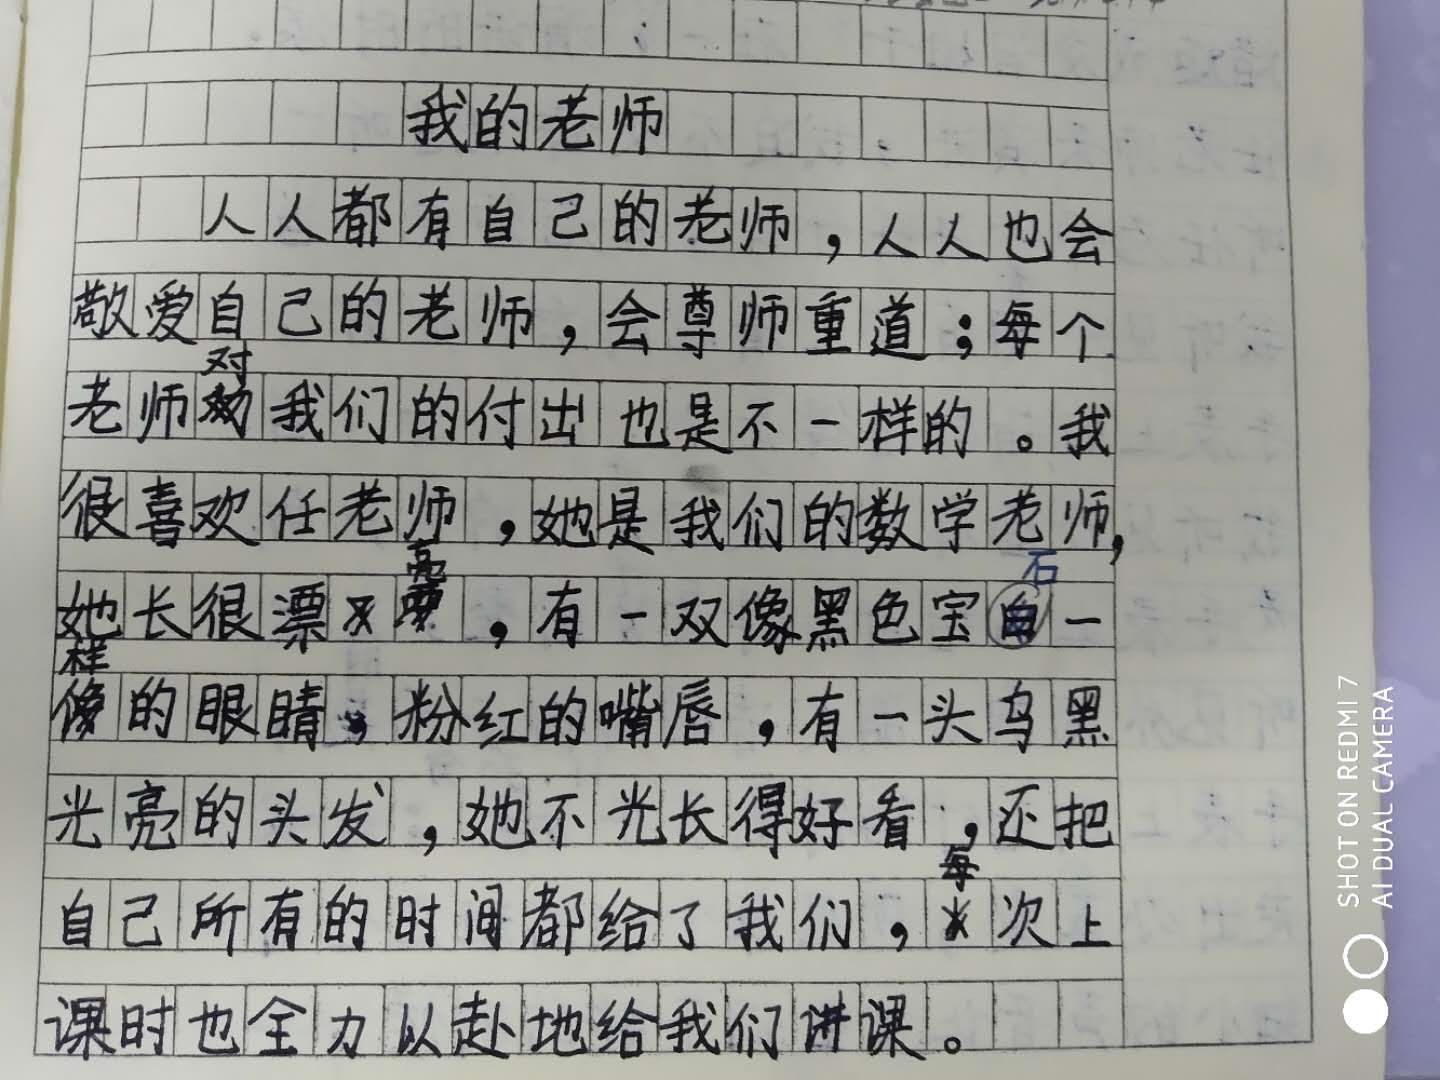 我的老师
人人都有自己的老师，人人也会
敬爱自己的老师，会尊师重道；每个
老师对我们的付出也是不一样的。我
很喜欢任老师，她是我们的数学老师，
她长很漂亮，有一双像黑色宝石一
样的眼睛，粉红的嘴唇，有一头乌黑
光亮的头发，她不光长得好看，还把
自己所有的时间都给了我们，每次上
课时也全力以赴地给我们讲课。
SHOT ON REDMI 7
AI DUAL CAMERA